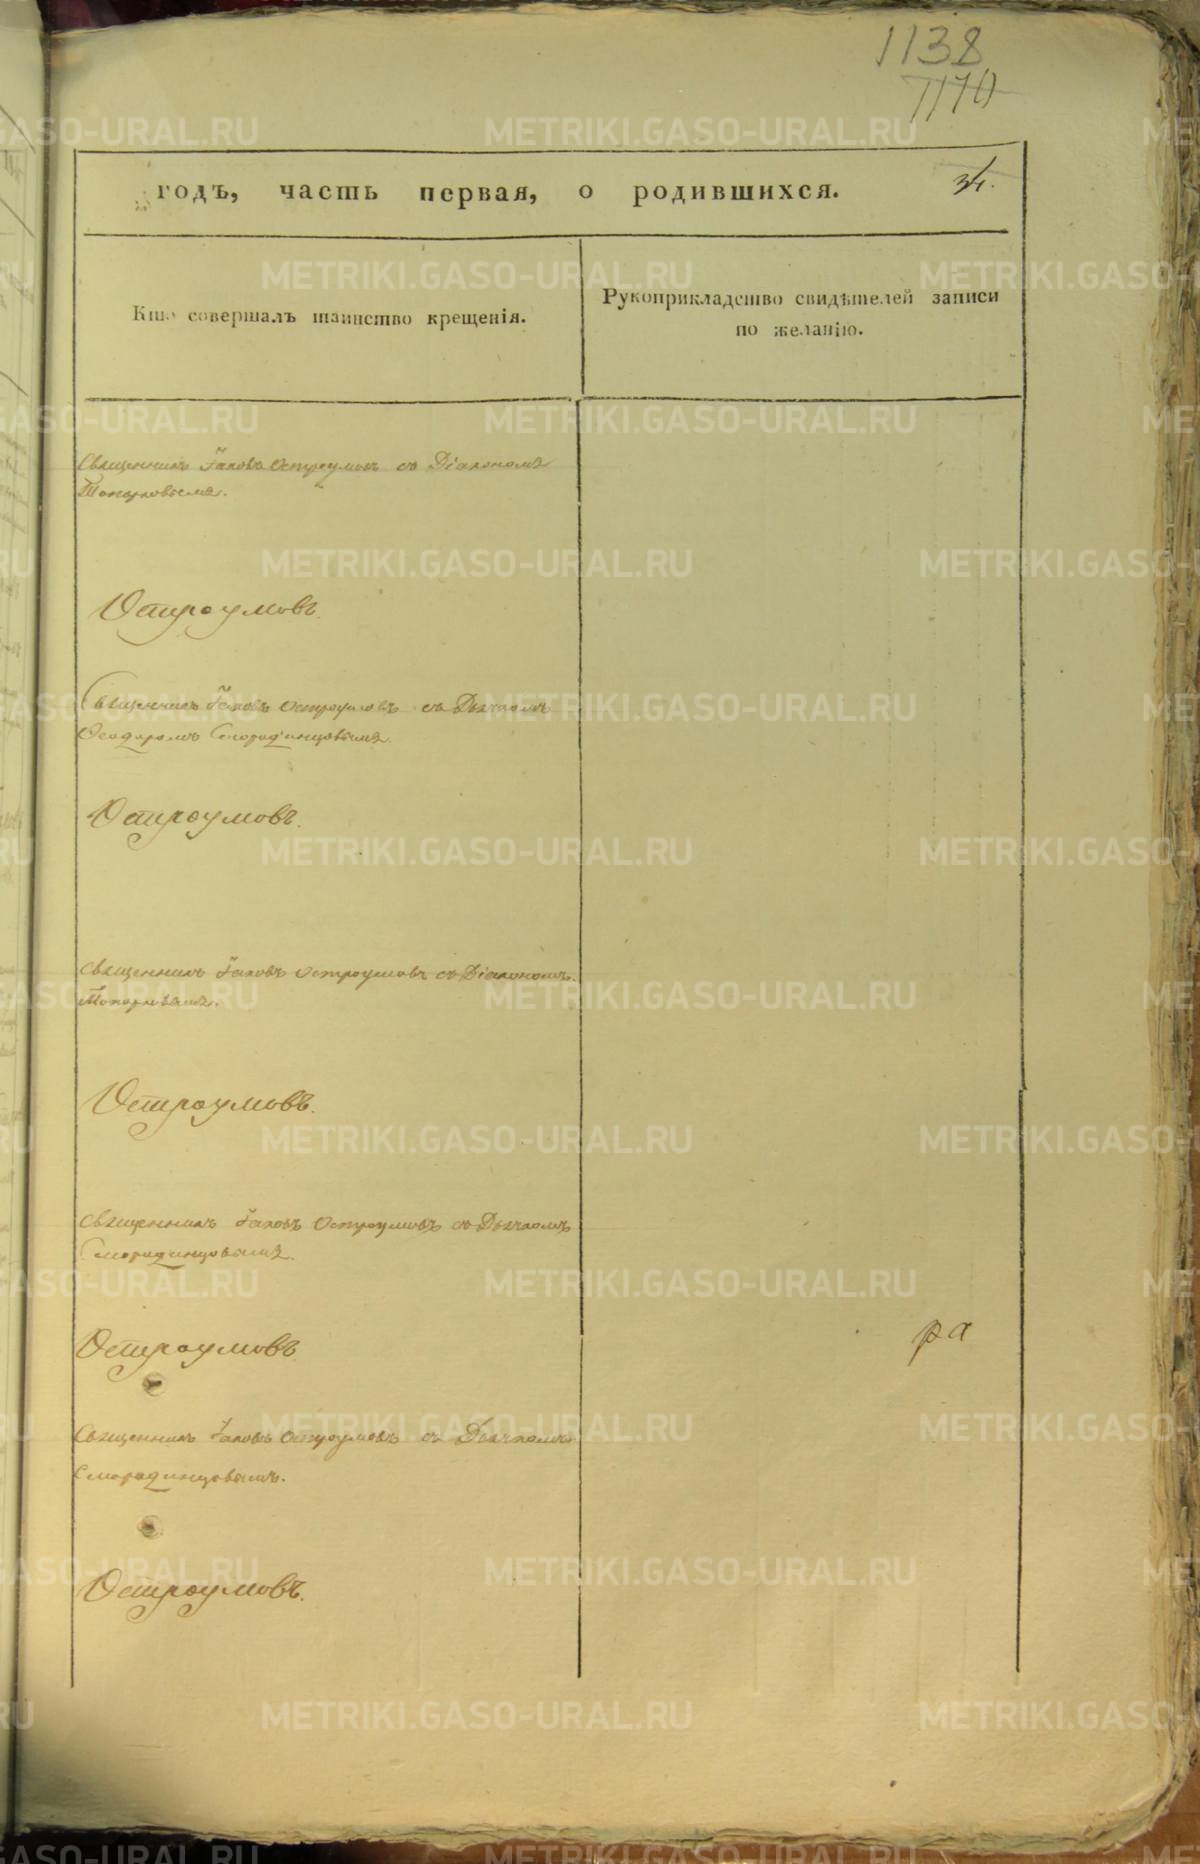 1138
1170
годъ, часть первая, о родившихся.
34.
Кто совершалъ таинство крещенія.
Рукоприкладство свидѣтелей записи
по желанію.
Священникъ Іаковъ Остроумовъ съ Діакономъ
Топорковымъ.
Остроумовъ.
Священникъ Іаковъ Остроумовъ съ Дьячкомъ
Ѳеодоромъ Смородинцовымъ.
Остроумовъ.
Священникъ Іаковъ Остроумовъ съ Діакономъ
Топорковымъ.
Остроумовъ.
Священникъ Іаковъ Остроумовъ съ Дьячкомъ
Смородинцовымъ.
Остроумовъ
ра
Священникъ Іаковъ Остроумовъ съ Дьячкомъ
Смородинцовымъ.
Остроумовъ.
METRIKI.GASO-URAL.RU